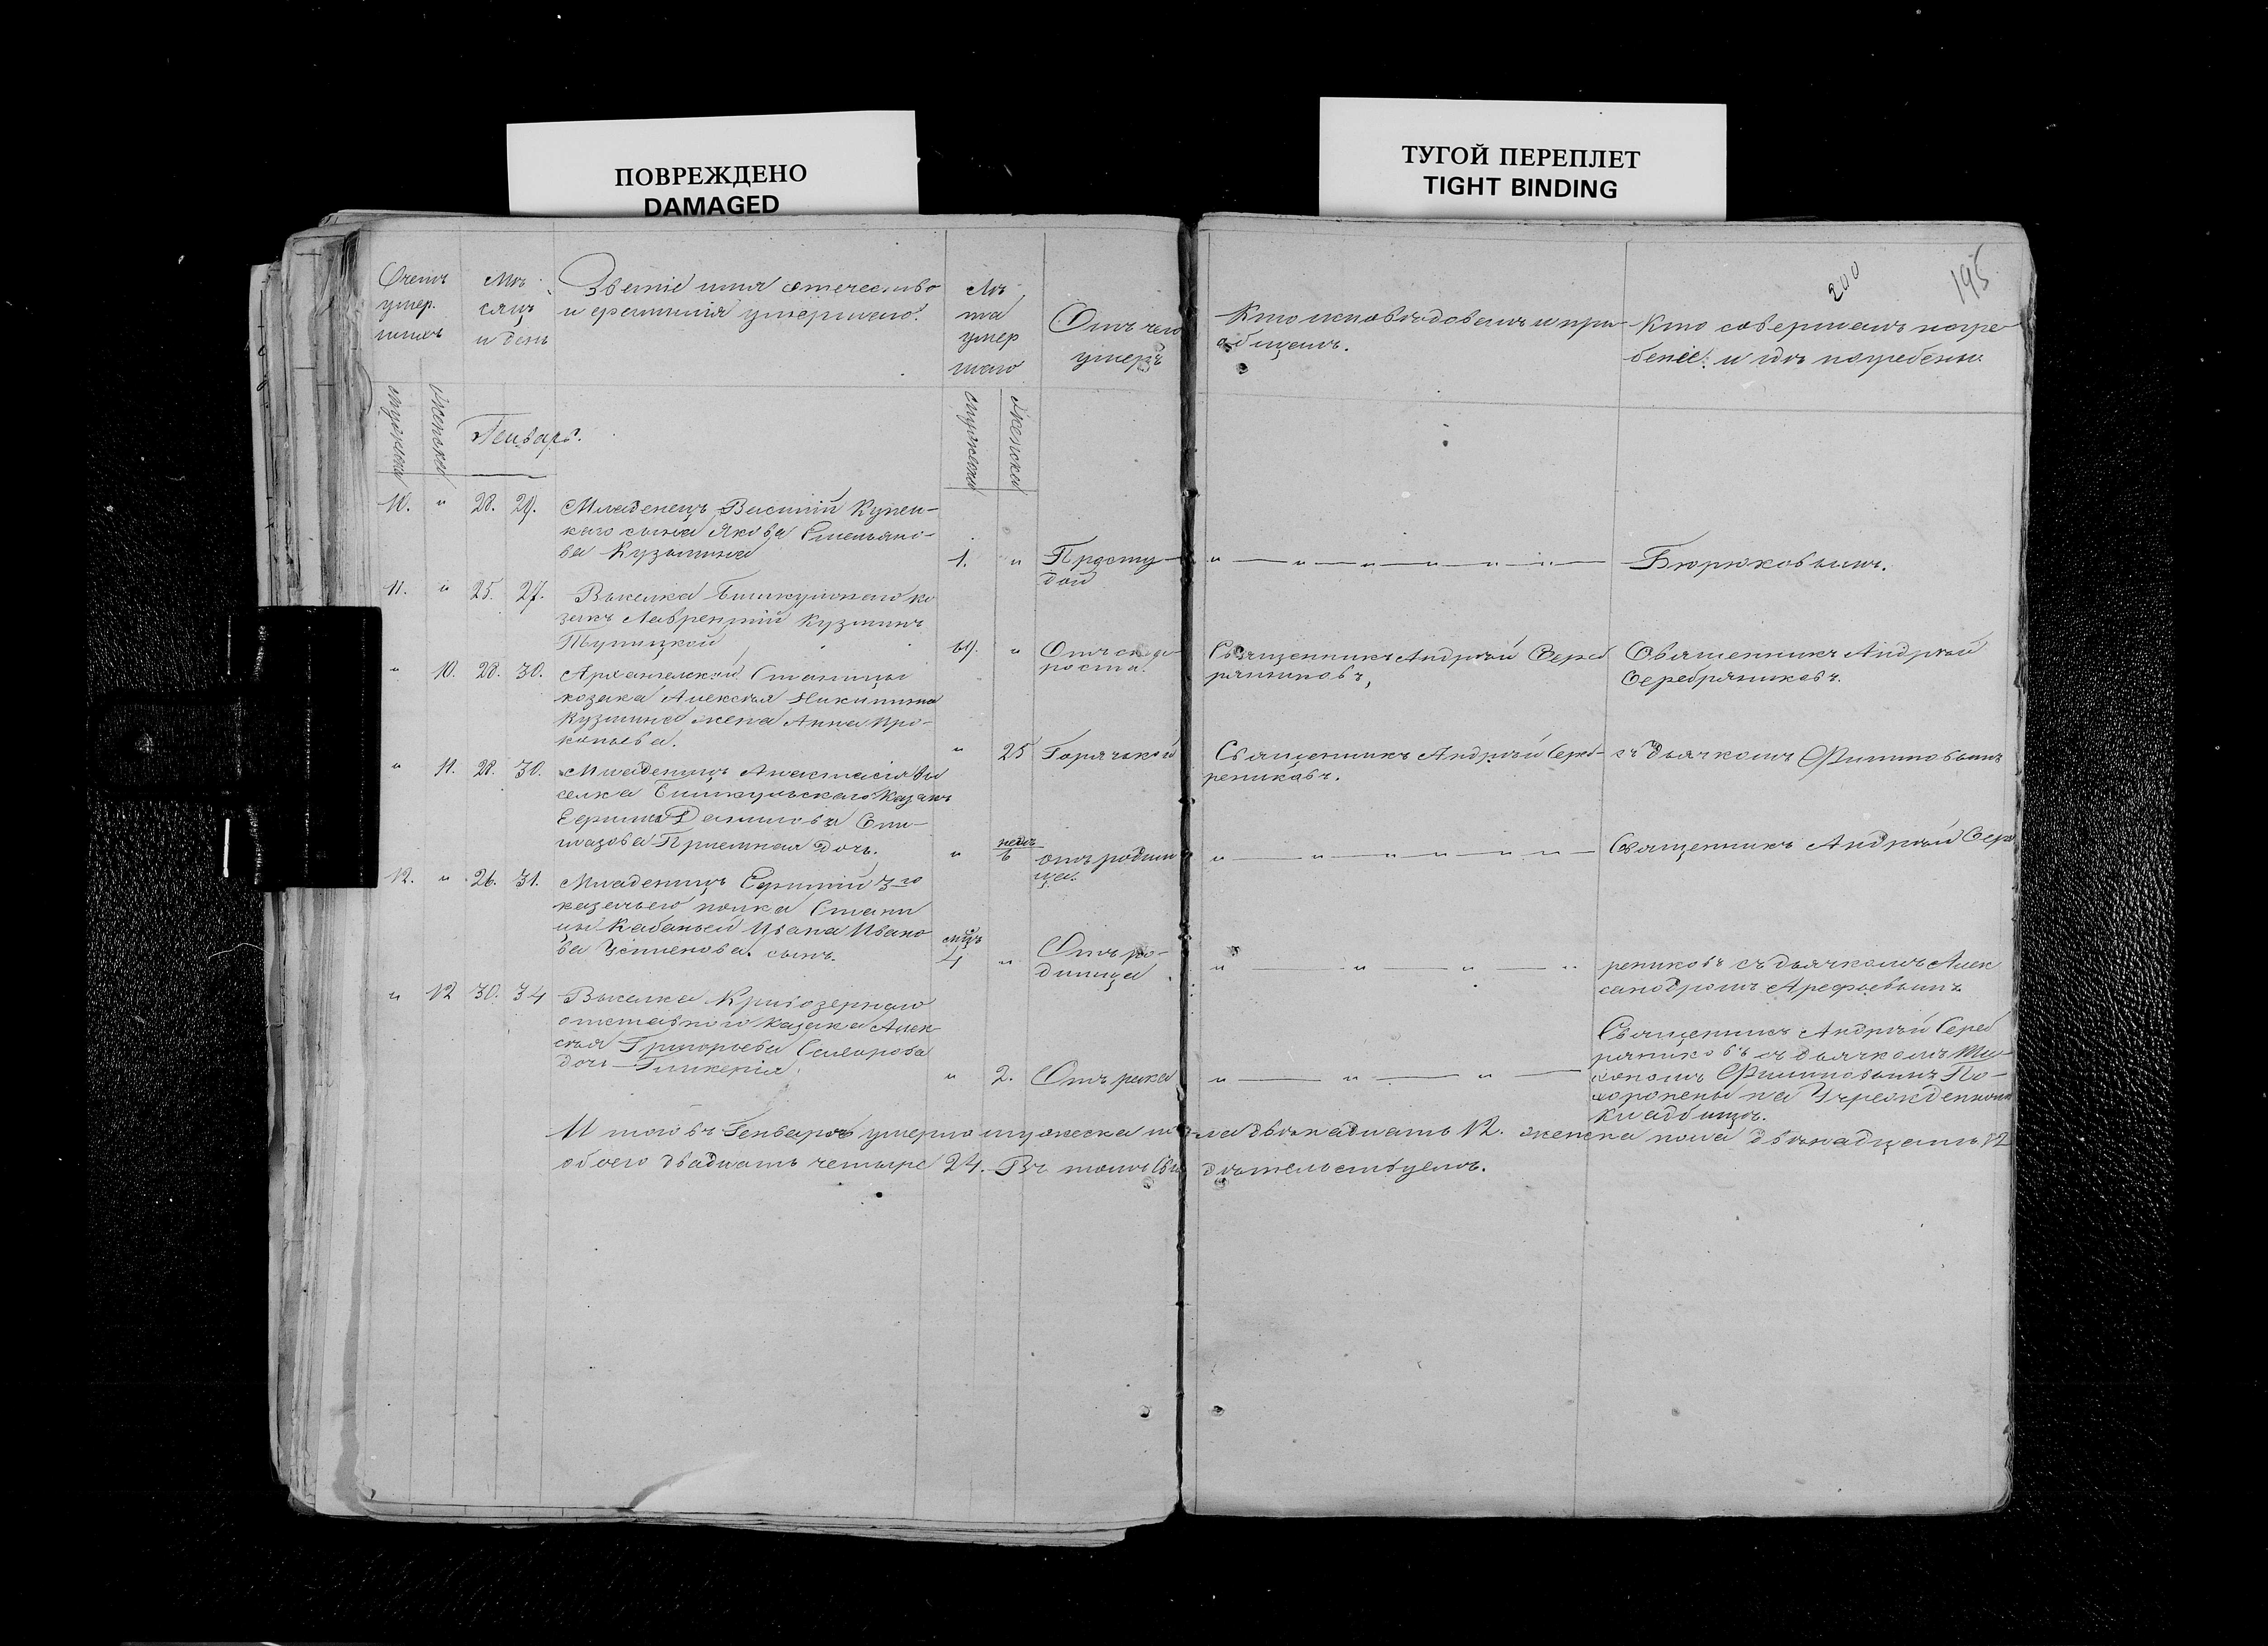 ПОВРЕЖДЕНО
DAMAGED
ТУГОЙ ПЕРЕПЛЕТ
TIGHT BINDING
200
195
Счетъ умер. шихъ
Мѣ сяцъ и день
Званіе имя отечество
и фамилія умершаго.
Лѣ та умер шаго
Отъ чего умеръ
Кто исповѣдовалъ и прі
общалъ.
Кто совершалъ погре
бенiе: и гдѣ погребены.
мужеска
женска
Генварь.
мужеска
женска
10. " 28. 29. Младенецъ Василій Купец-
каго сына Якова Емельяно-
ва Кузьмина
1. " Просту-
дой
" — " — " — " — " — " —
Бюрюковымъ.
11. " 25. 27. Выселка ко
закъ Лаврентій Кузминъ
69. " Отъ ста
роста.
Священникъ Андрей Сереб
ряниковъ,
Священникъ Андрей
Серебряниковъ.
" 10. 28. 30. Архангельской Станицы
козака Алексѣя Никитина
Кузмина жена Анна Про-
копьева.
" 25 Горячькой
Священникъ Андрей Сереб-
рениковъ.
съ дьячкомъ Филиповымъ
" 11. 28. 30. Младенецъ Анастасія Вы
селка Казакъ
Данилова
Приемная дочь.
" недѣ 6 отъ родим
ца.
" — " — " — " — " —
Священникъ Андрей Сере
12. " 26. 31. Младенецъ 3го
казачьего полка Стани
цы Кабаньей Ивана Ивано
ва Устменова. сынъ.
мѣц 4 " Отъ ро-
димца.
" — " — " — "
рениковъ съ дьячкомъ Алек
сандромъ Арефьевымъ
" 12 30. 34 Выселка Кривозернаго
отставного казака Алек
сѣя Григорьева
дочь Гликерія.
" 2. Отъ рака
" — " — " —
Священникъ Андрей Сереб
ряниковъ съ дьячкомъ
Филиповымъ По-
хоронены на Учрежденномъ
кладбищѣ.
Итого въ Генварѣ умерло мужеска пола двѣнадцать 12. женска пола двѣнадцать 12
обоего двадцать четыре 24. Въ томъ Сви дѣтельствуемъ.